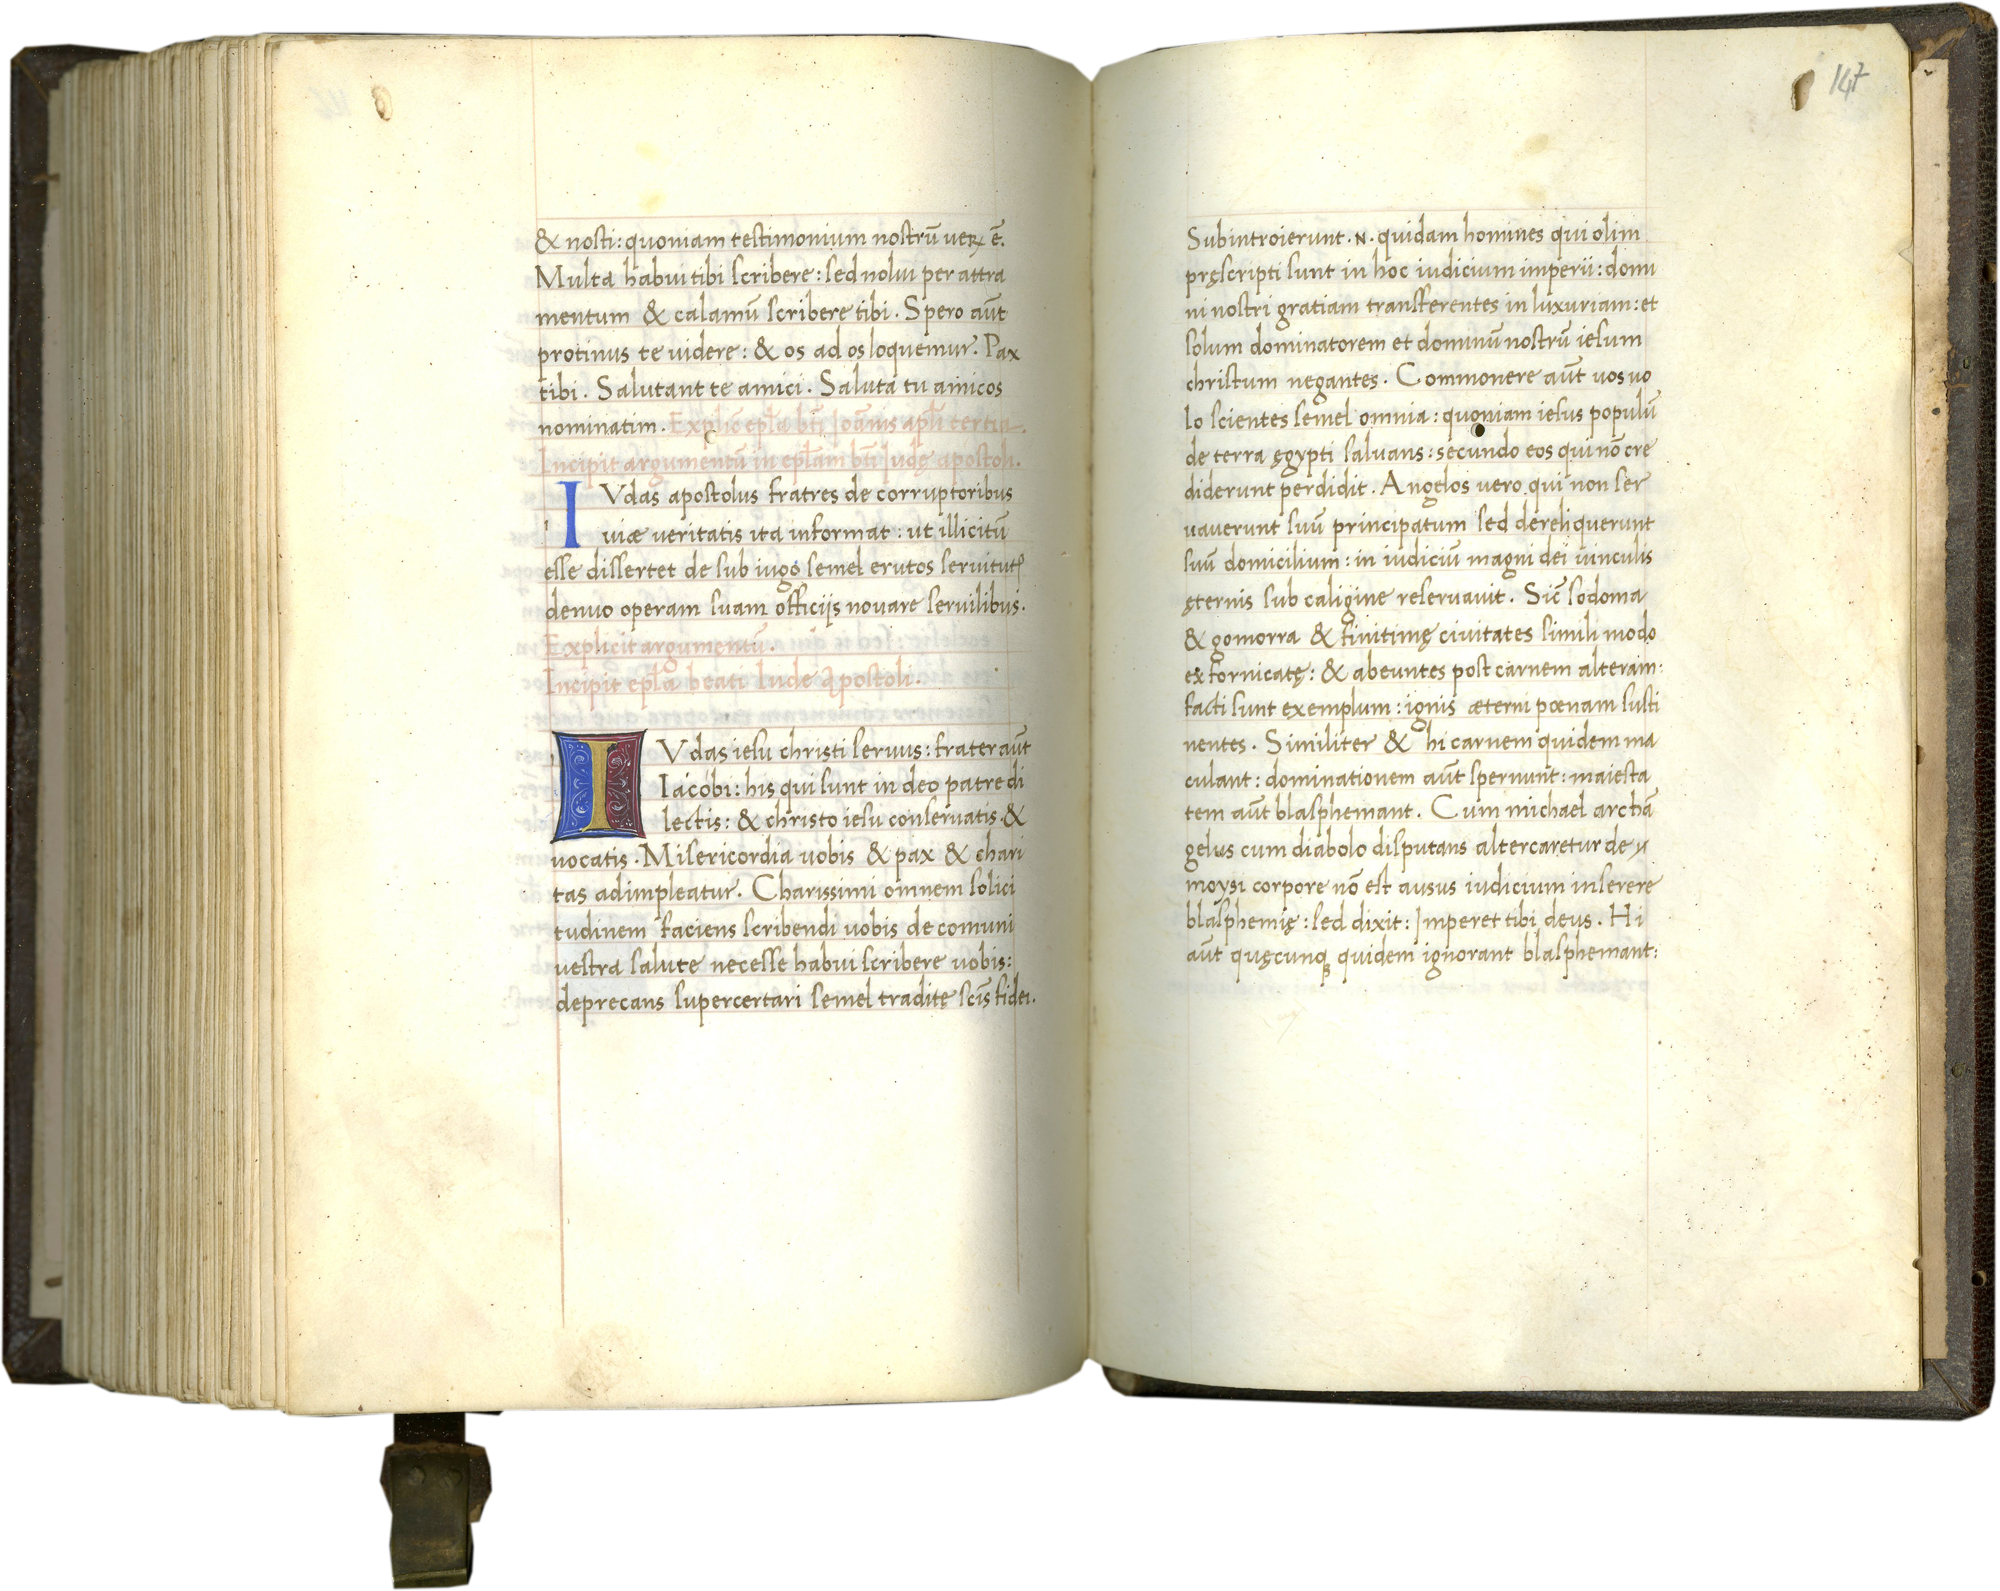 & nosti: quoniam testimonium nostrū uerꝝ ē.
Multa habui tibi scribere: sed nolui per attra
mentum & calamū scribere tibi. Spero aūt
protinus te uidere: & os ad os loquemur. Pax
tibi. Salutant te amici. Saluta tu amicos
nominatim. Explic̄ epl̄a bt̄i Joān̄is apl̄i tertia.
Incipit argumentū in epl̄am bt̄i Judę apostoli.
IVdas apostolus fratres de corruptoribus
uiæ ueritatis ita informat: ut illicitū
esse dissertet de sub iugo semel erutos seruitutꝭ
denuo operam suam officijs nouare seruilibus.
Explicit argumentū.
Incipit epl̄a beati Iude Apostoli.
IVdas iesu christi seruus: frater aūt
Iacobi: his qui sunt in deo patre di
lectis: & christo iesu conseruatis &
uocatis. Misericordia uobis & pax & chari
tas adimpleatur. Charissimi omnem solici
tudinem faciens scribendi uobis de comuni
uestra salute necesse habui scribere uobis:
deprecans supercertari semel traditę scīs fidei.
147
Subintroierunt .N. quidam homines qui olim
pręscripti sunt in hoc iudicium imperii: domi
ni nostri gratiam transferentes in luxuriam: et
solum dominatorem et dominū nostrū iesum
christum negantes. Commonere aūt uos uo
lo scientes semel omnia: quoniam iesus populū
de terra ęgypti saluans: secundo eos qui nō cre
diderunt perdidit. Angelos uero qui non ser
uauerunt suū principatum sed dereliquerunt
suū domicilium: in iudiciū magni dei uinculis
ęternis sub caligine reseruauit. Sic̄ sodoma
& gomorra & finitimę ciuitates simili modo
exfornicatę: & abeuntes post carnem alteram:
facti sunt exemplum: ignis æterni pœnam susti
nentes. Similiter & hi carnem quidem ma
culant: dominationem aūt spernunt: maiesta
tem aūt blasphemant. Cum michael archā
gelus cum diabolo disputans altercaretur de
moysi corpore nō est ausus iudicium inserere
blasphemię: sed dixit: Imperet tibi deus. Hi
aūt quęcunqꝫ quidem ignorant blasphemant: